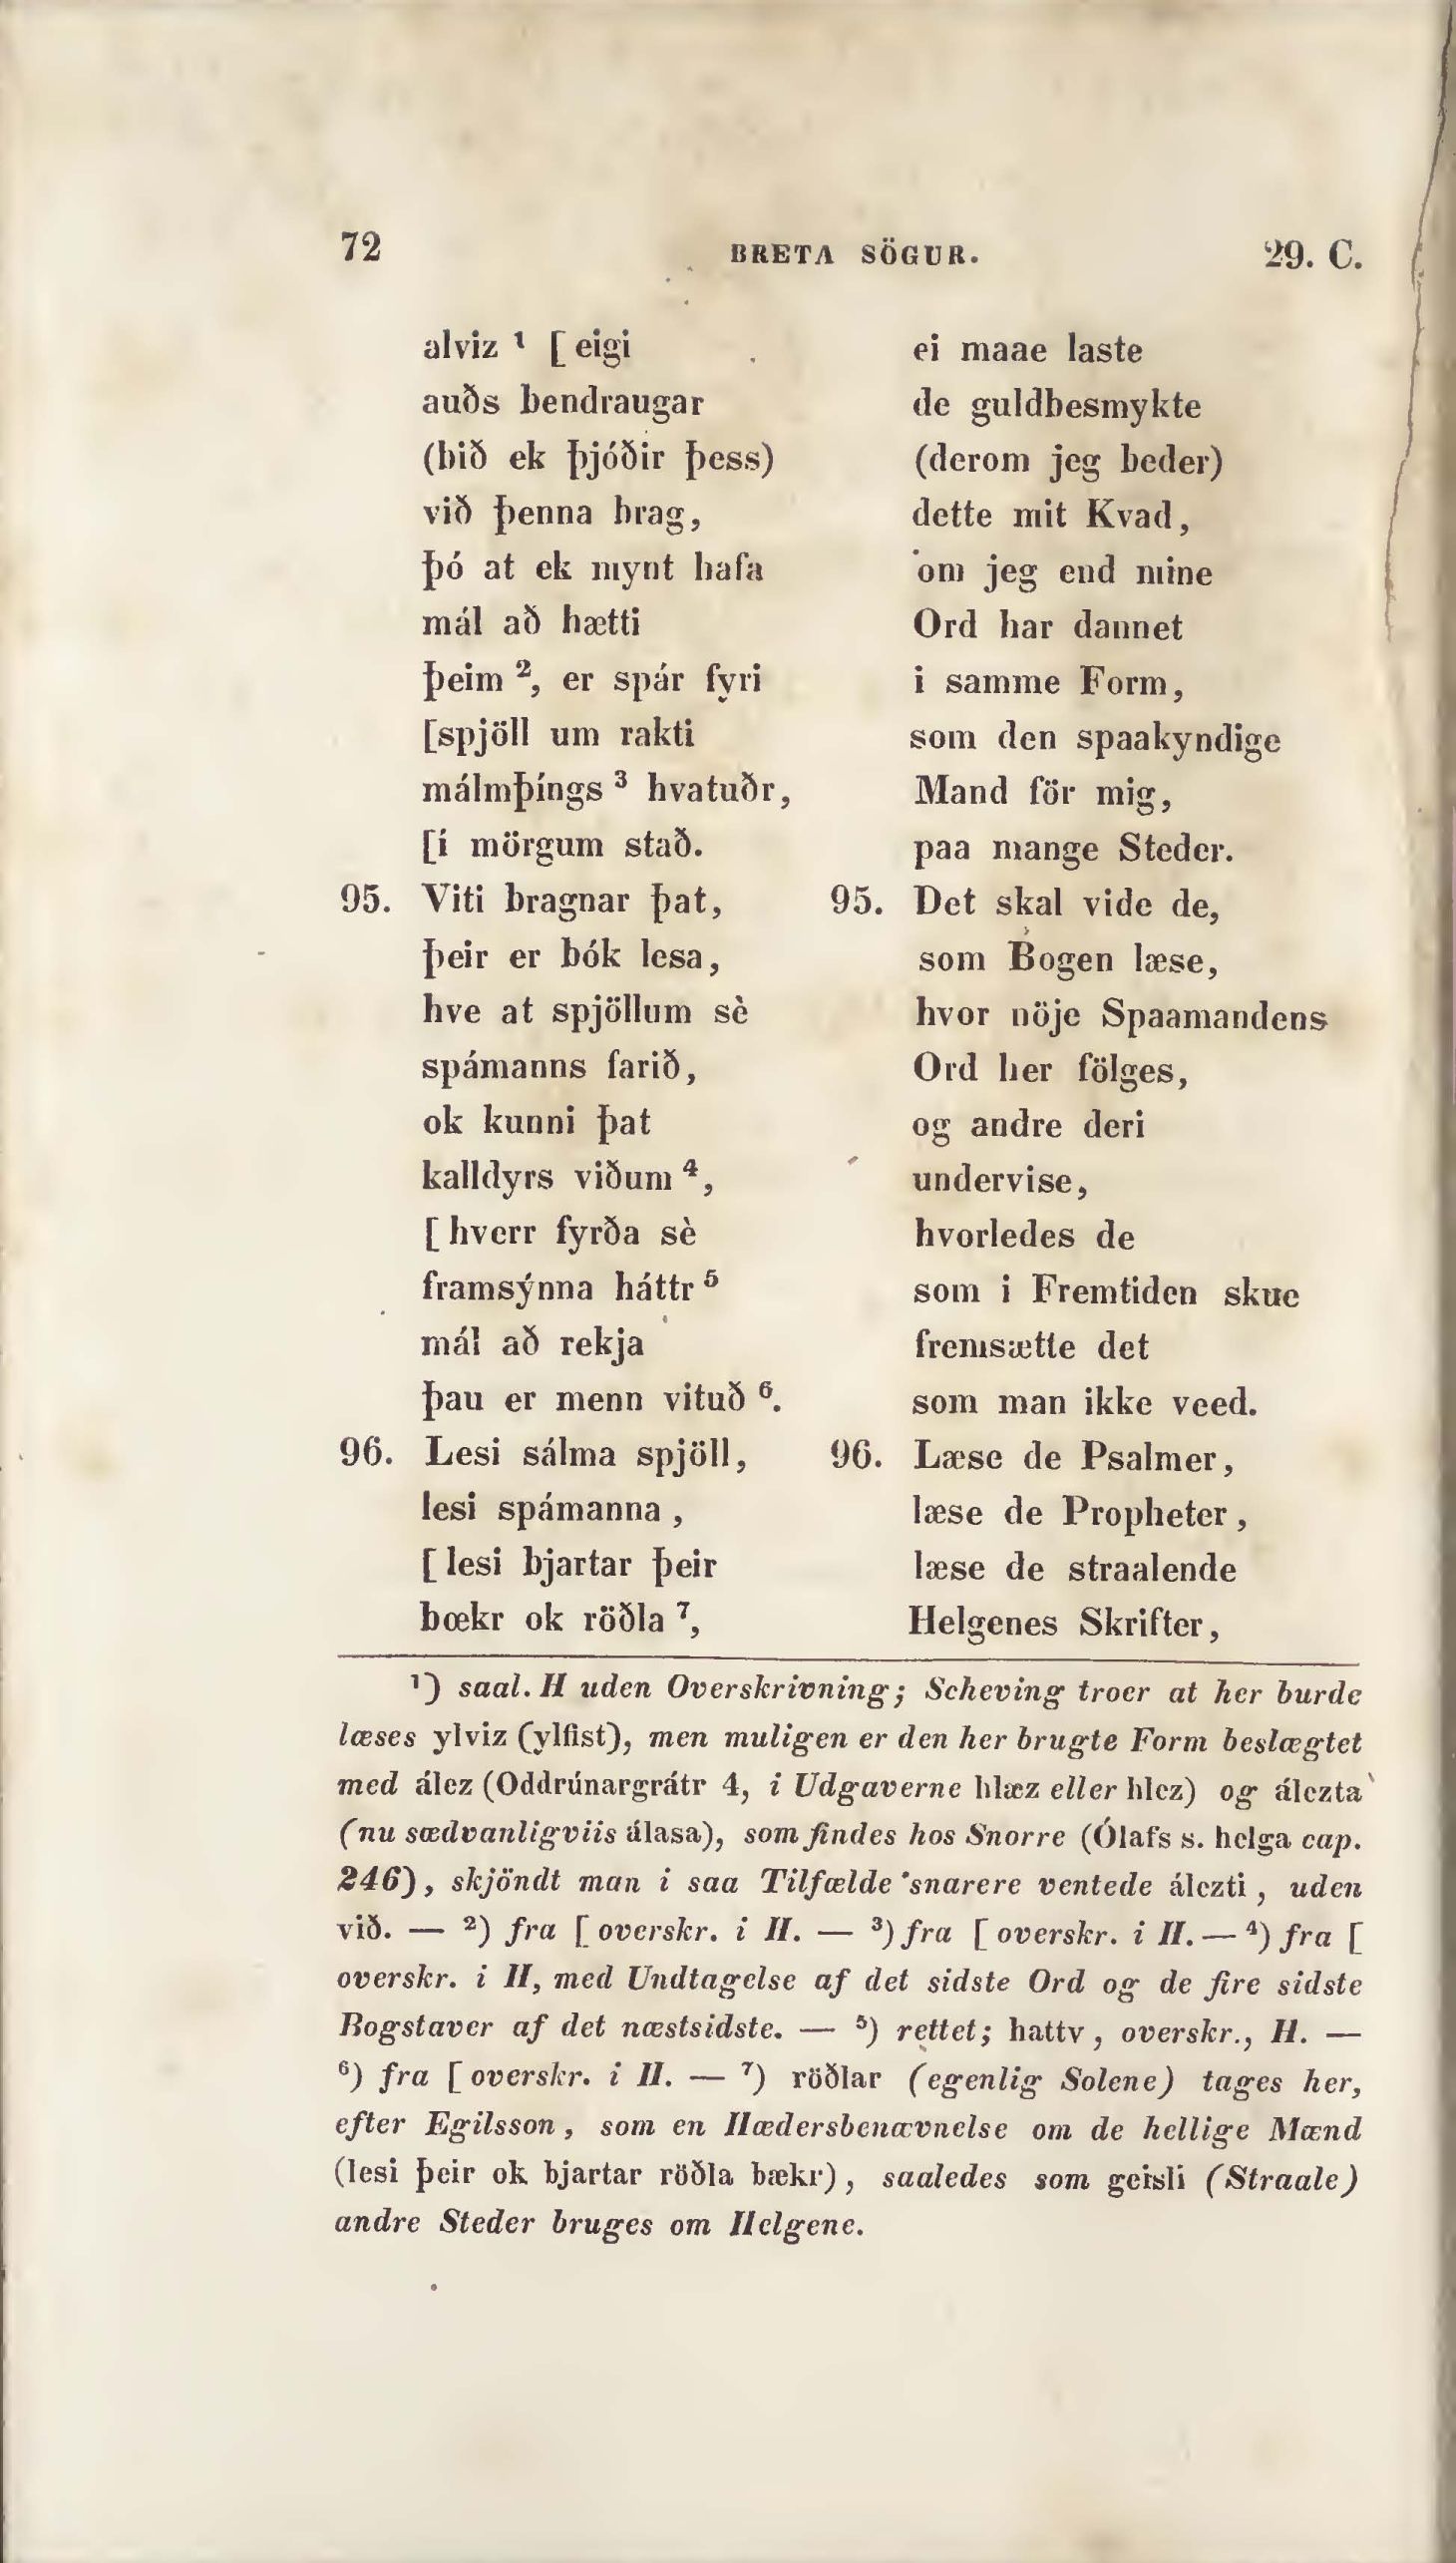 72 BRETA SÖGUR. 29. C.
alviz ¹ [ eigi
auðs bendraugar
(bið ek þjóðir þess)
við þenna brag,
þó at ek mynt hafa
mál að hætti
þeim ², er spár fyri
[spjöll um rakti
málmþíngs ³ hvatuðr,
[í mörgum stað.
95. Viti bragnar þat,
þeir er bók lesa,
hve at spjöllum sè
spámanns farið,
ok kunni þat
kalldyrs viðum ⁴,
[ hverr fyrða sè
framsýnna háttr ⁵
mál að rekja
þau er menn vituð ⁶.
96. Lesi sálma spjöll,
lesi spámanna,
[ lesi bjartar þeir
bœkr ok röðla ⁷,
ei maae laste
de guldbesmykte
(derom jeg beder)
dette mit Kvad,
om jeg end mine
Ord har dannet
i samme Form,
som den spaakyndige
Mand för mig,
paa mange Steder.
95. Det skal vide de,
som Bogen læse,
hvor nöje Spaamandens
Ord her fölges,
og andre deri
undervise,
hvorledes de
som i Fremtiden skue
fremsætte det
som man ikke veed.
96. Læse de Psalmer,
læse de Propheter,
læse de straalende
Helgenes Skrifter,
¹) saal. H uden Overskrivning; Scheving troer at her burde
læses ylviz (ylfist), men muligen er den her brugte Form beslægtet
med ález (Oddrúnargrátr 4, i Udgaverne hlæz eller hlez) og álezta
(nu sædvanligviis álasa), som findes hos Snorre (Ólafs s. helga cap.
246), skjöndt man i saa Tilfælde snarere ventede álezti, uden
við. — ²) fra [ overskr. i H. — ³) fra [ overskr. i H. — ⁴) fra [
overskr. i H, med Undtagelse af det sidste Ord og de fire sidste
Bogstaver af det næstsidste. — ⁵) rettet; hattv, overskr., H. —
⁶) fra [ overskr. i H. — ⁷) röðlar (egenlig Solene) tages her,
efter Egilsson, som en Hædersbenævnelse om de hellige Mænd
(lesi þeir ok bjartar röðla bækr), saaledes som geisli (Straale)
andre Steder bruges om Helgene.